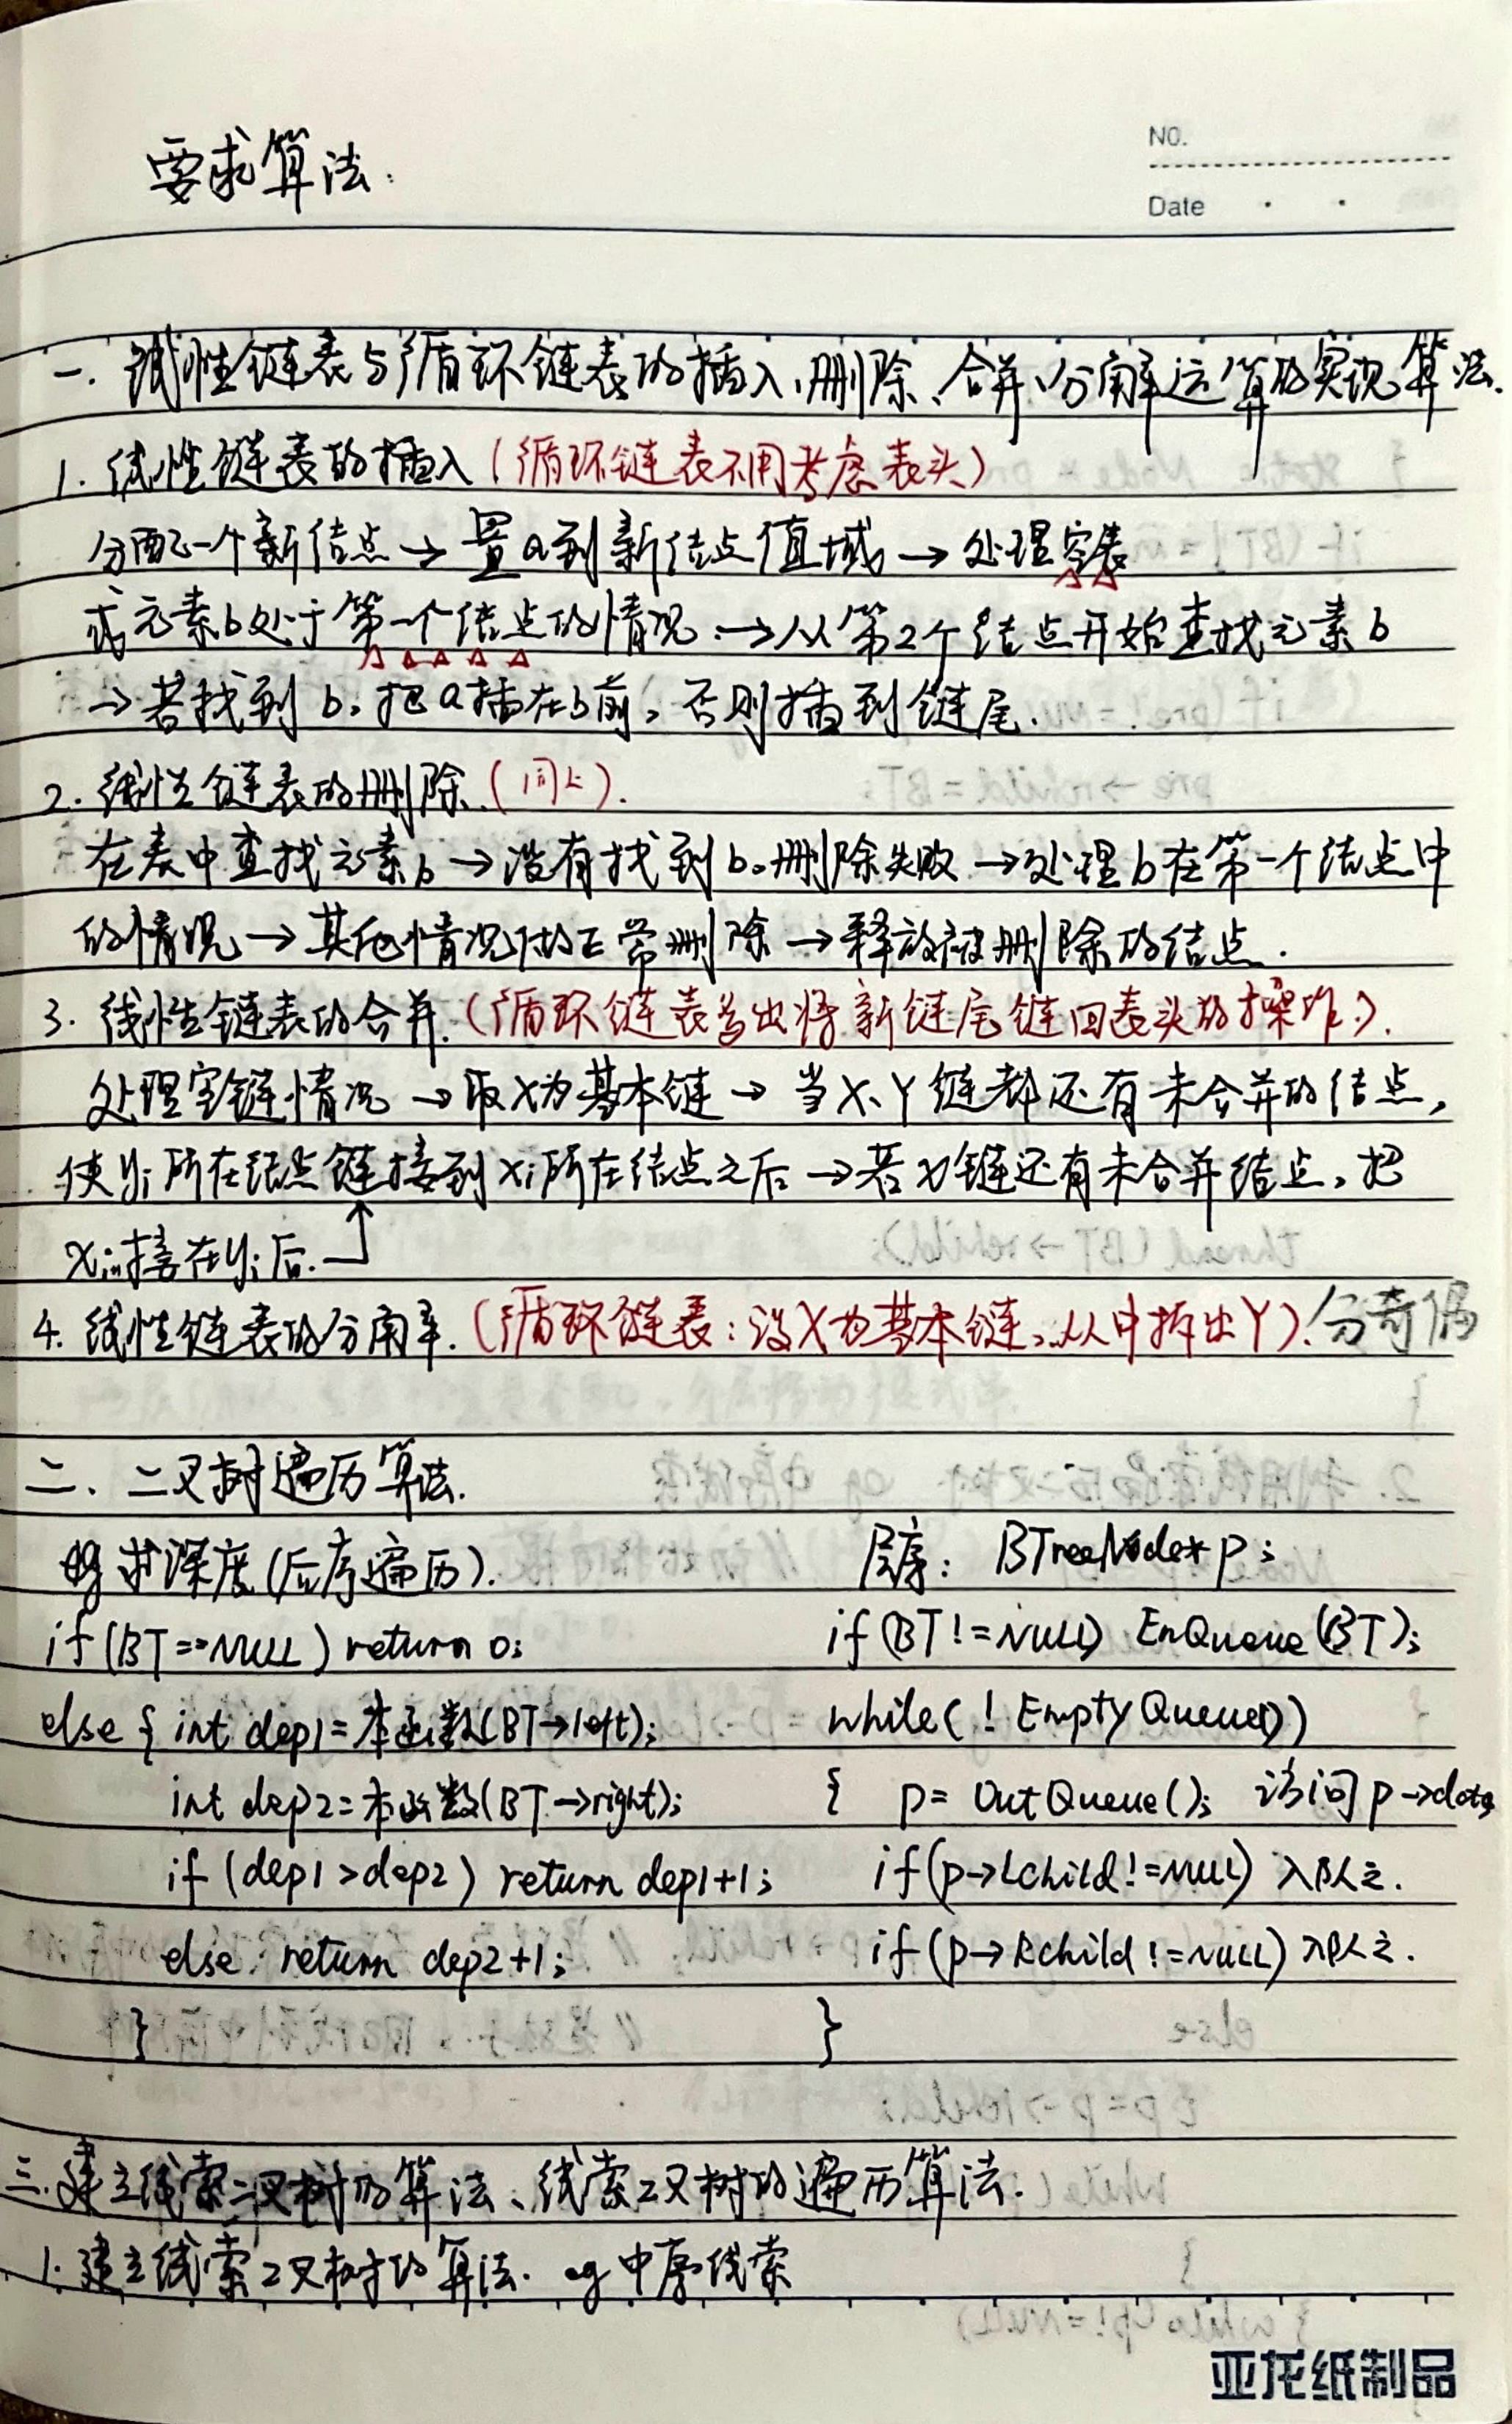 要求算法:
NO.
Date
一. 线性链表与循环链表的插入、删除、合并、分解运算的实现算法.
1. 线性链表的插入(循环链表不用考虑表头)
分配一个新结点→置a到新结点值域→处理空表
或元素b处于第一个结点的情况→从第2个结点开始查找元素b
→若找到b,把a插在b前,否则插到链尾.
2. 线性链表的删除.(同上).
在表中查找元素b→没有找到b,删除失败→处理b在第一个结点中
的情况→其他情况做正常删除→释放被删除的结点.
3. 线性链表的合并.(循环链表多出将新链尾链回表头的操作).
处理空链情况→取X为基本链→当X、Y链都还有未合并的结点,
使yi所在结点链接到xi所在结点之后→若X链还有未合并结点,把
xi+1接在yi后.
4. 线性链表的分解.(循环链表:设X为基本链,从中拆出Y).分奇偶
二. 二叉树遍历算法.
eg 求深度(后序遍历).
if(BT==NULL) return 0;
else { int dep1=本函数(BT→left);
int dep2=本函数(BT→right);
if (dep1>dep2) return dep1+1;
else return dep2+1;
}
层序: BTreeNode* p;
if(BT!=NULL) EnQueue(BT);
while( ! EmptyQueue())
{ p= OutQueue(); 访问p→data
if(p→Lchild!=NULL) 入队之.
if(p→Rchild!=NULL) 入队之.
}
三.建立线索二叉树的算法、线索二叉树的遍历算法.
1. 建立线索二叉树的算法. eg 中序线索
亚龙纸制品